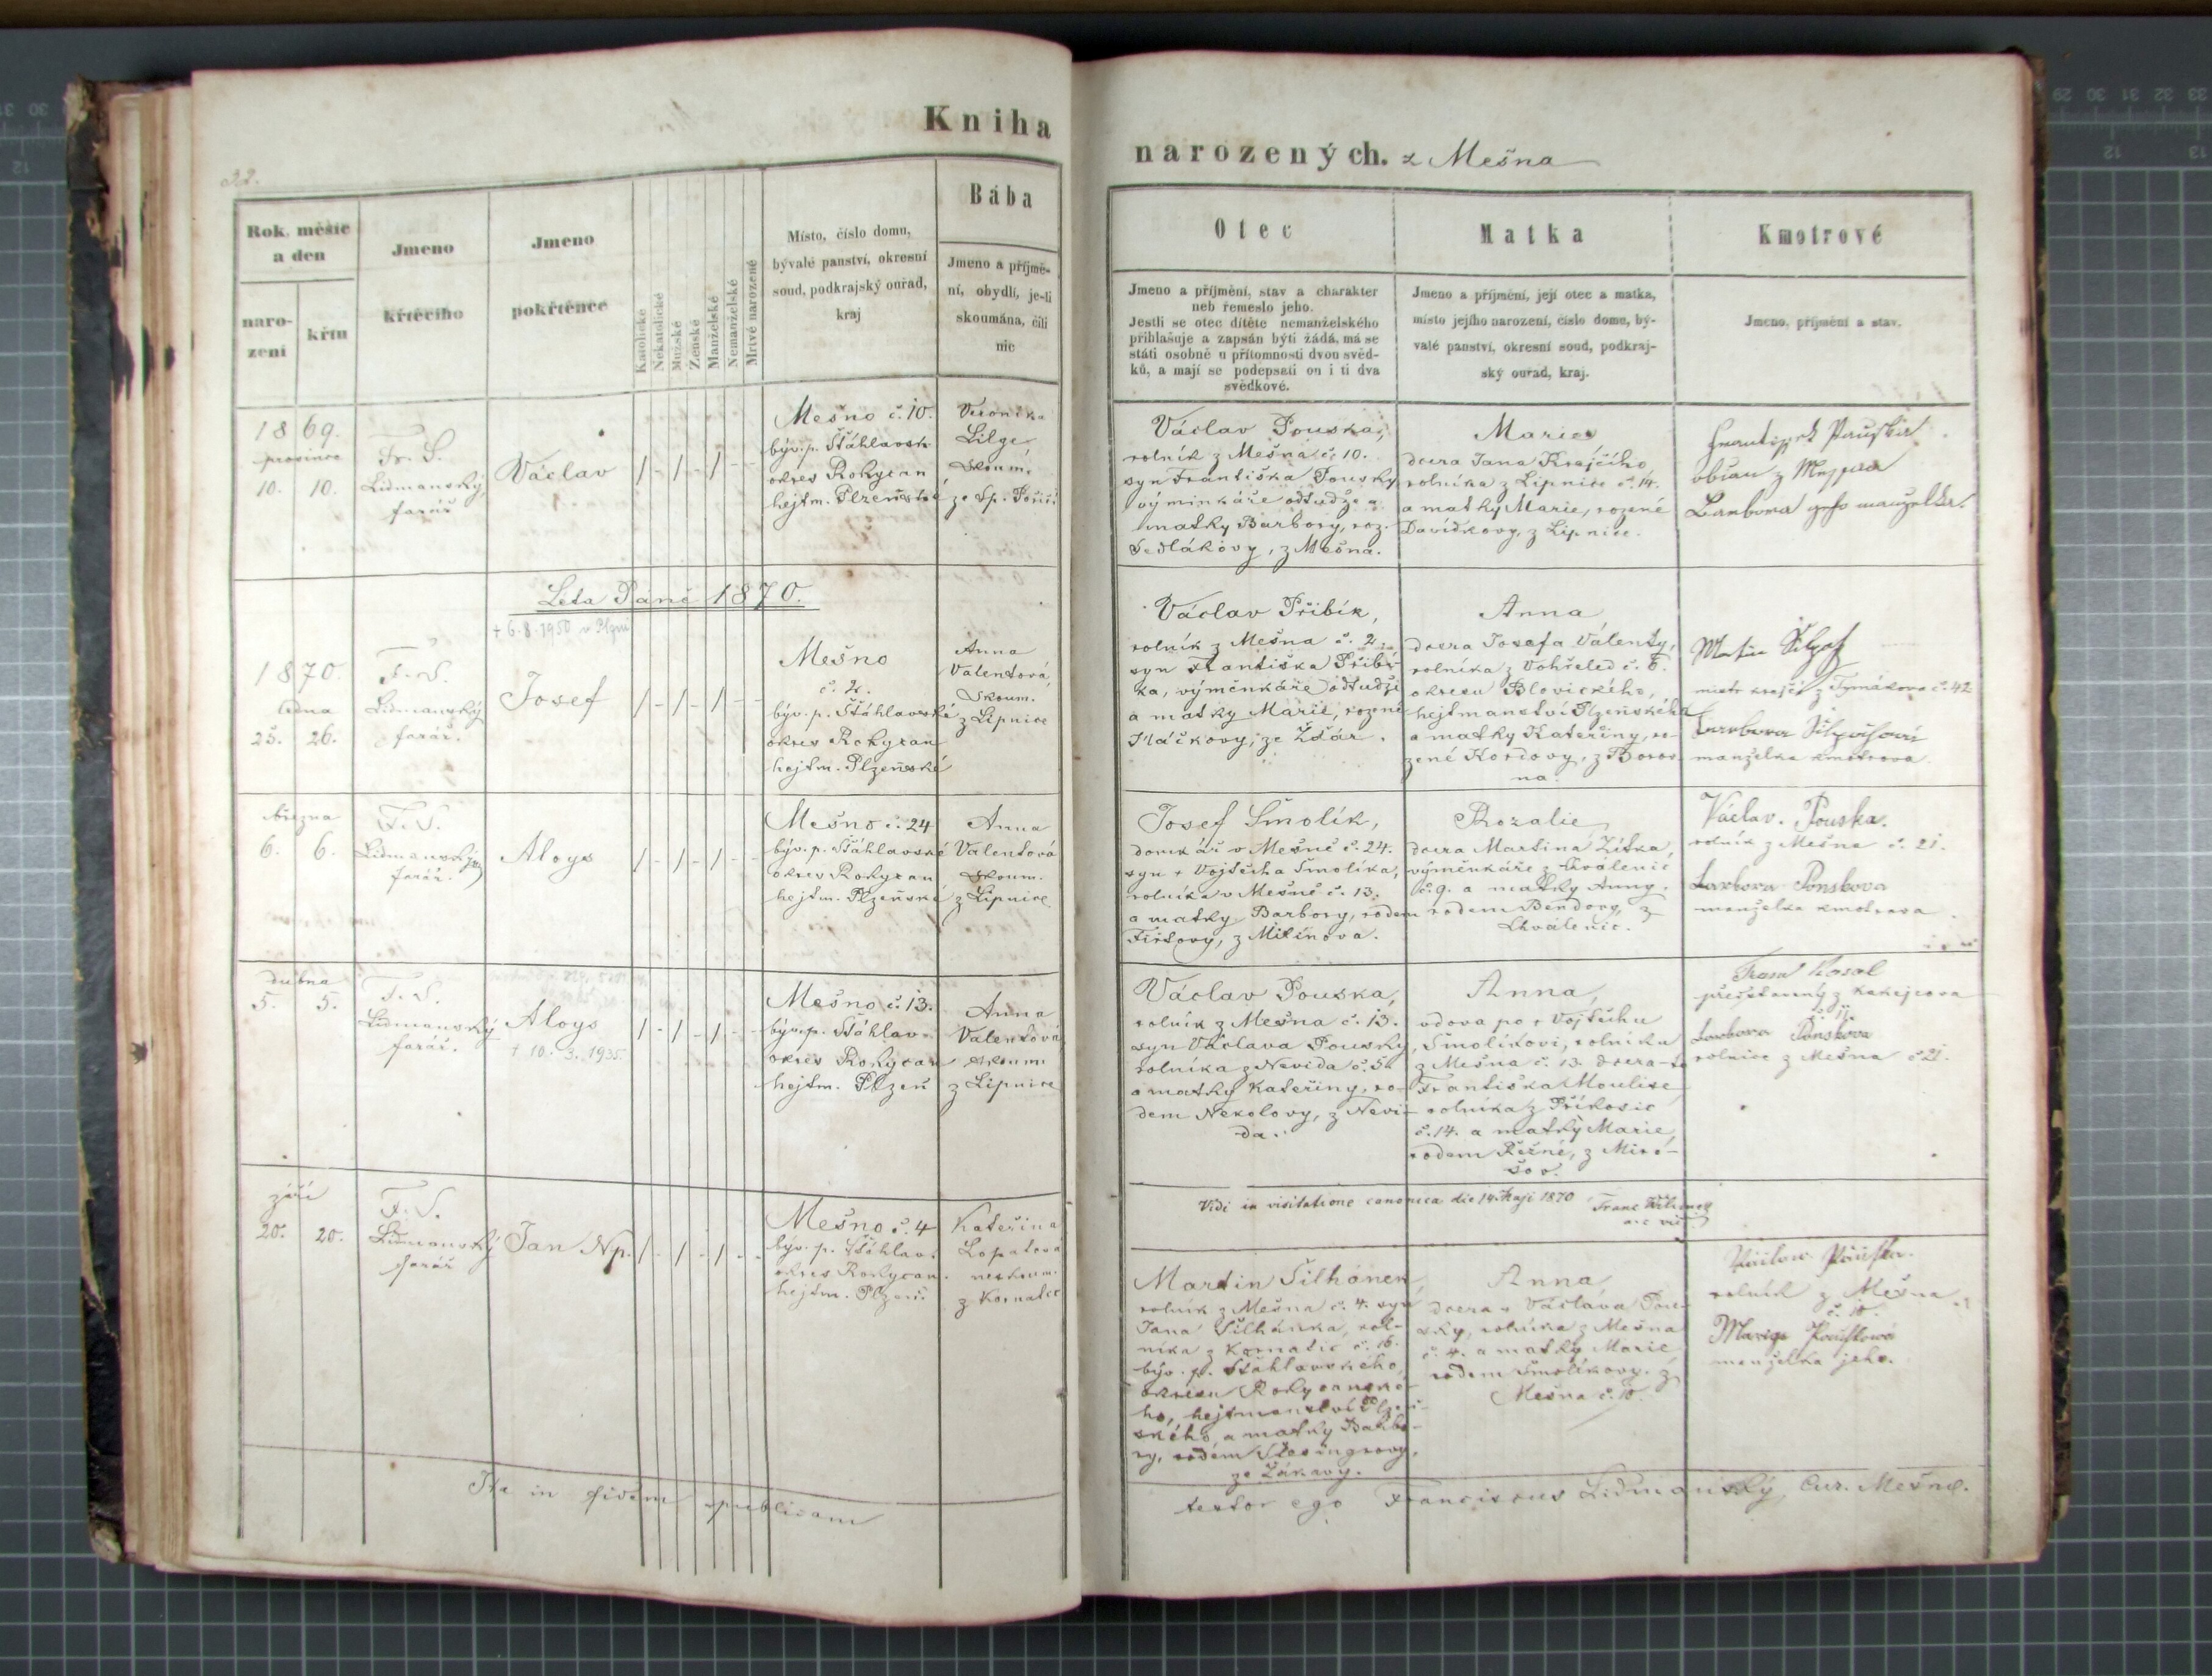 Kniha
32.
Rok, měsíc
a den
naro-
zení
křtu
Jmeno
křtěcího
Jmeno
pokřtěnce
Katolické
Nekatolické
Mužské
Ženské
Manželské
Nemanželské
Mrtvé narozené
Místo, číslo domu,
bývalé panství, okresní
soud, podkrajský ouřad,
kraj
Bába
Jmeno a příjmě-
ní, obydlí, je-li
skoumána, čili
nic
1869.
prosince
10. 10.
Fr. S.
Lidmanský,
farář
Václav
Mešno č. 10.
býv. p. Šťáhlavsk
okres Rokycan
hejtm. Plzeňské
Veronika
Lilge,
skoum.
ze Sp. Poříčí
Léta Páně 1870.
+ 6. 8. 1950 v Plzni
1870.
ledna
25. 26.
F. S.
Lidmanský
farář.
Josef
Mešno
č. 2.
býv. p. Šťáhlavské
okres Rokycan
hejtm. Plzeňské
Anna
Valentová,
skoum.
z Lipnice
března
6. 6.
F. S.
Lidmanský
farář.
Aloys
Mešno č. 24
býv. p. Šťáhlavské
okres Rokycan
hejtm. Plzeňské
Anna
Valentová
skoum.
z Lipnice
dubna
5. 5.
F. S.
Lidmanský
farář.
Aloys
+ 10. 3. 1935
Mešno č. 13.
býv. p. Šťáhlav.
okres Rokycan
hejtm. Plzeň
Anna
Valentová
skoum.
z Lipnice
září
20. 20.
F. S.
Lidmanský
farář
Jan Np.
Mešno č. 4
býv. p. Šťáhlav.
okres Rokycan.
hejtm. Plzeň
Kateřina
Lopatová
neskoum.
z Kornatic
Ita in fidem publicam
narozených. z Mešna
Otec
Jmeno a příjmění, stav a charakter
neb řemeslo jeho.
Jestli se otec dítěte nemanželského
přihlašuje a zapsán býti žádá, má se
státi osobně u přítomnosti dvou svěd-
ků, a mají se podepsati on i ti dva
svědkové.
Matka
Jmeno a příjmění, její otec a matka,
místo jejího narození, číslo domu, bý-
valé panství, okresní soud, podkraj-
ský ouřad, kraj.
Kmotrové
Jmeno, příjmění a stav.
Václav Pouska,
rolník z Mešna č. 10.
syn Františka Pousky
výminkáře odtudže a
matky Barbory, roz.
Sedlákovy, z Mešna.
Marie,
dcera Jana Krejčího
rolníka z Lipnice č. 14.
a matky Marie, rozené
Davídkovy, z Lipnice.
Barbora
Václav Přibík,
rolník z Mešna č. 2
syn Františka Přibí-
ka, výměnkáře odtudže
a matky Marie, rozené
Ptáčkovy, ze Žďár.
Anna
dcera Josefa Valenty,
rolníka z Vohřeled č. 6.
okresu Blovického,
hejtmanství Plzeňského
a matky Kateřiny, ro-
zené Kordovy, z Borov-
na.
mistr krejčí z Tymákova č. 42
manželka kmotrova.
Josef Smolík,
domkář v Mešně č. 24.
syn + Vojtěcha Smolíka,
rolníka v Mešně č. 13.
a matky Barbory, rodem
z Mitínova.
Rozalie
dcera Martina Zítka,
výměnkáře z Chválenic
č. 9. a matky Anny,
rodem Bendovy, z
Chválenic.
Václav. Pouska.
rolník z Mešna č. 21.
Barbora Pouskova
manželka kmotrova
Václav Pouska,
rolník z Mešna č. 13.
syn Václava Pousky,
rolníka z Nevida č. 5
a matky Kateřiny, ro-
dem Nekolovy, z Nevi-
da.
Anna,
vdova po + Vojtěchu
Smolíkovi, rolníku
z Mešna č. 13. dcera
Františka Moulise
rolníka z Příkosic
č. 14. a matky Marie,
rodem z Miro-
šov.
Barbora Pouskova
rolnice z Mešna č 21.
Vidi in visitatione canonica die 14. Maji 1870
Martin Šilhánek
rolník z Mešna č. 4. syn
Jana Šilhánka, rol-
níka z Kornatic č. 16.
býv. p. Šťáhlavského
okresu Rokycanské-
ho, hejtmanství Plzeň-
ského, a matky Barbo-
ry, rodem
ze Žákavy.
Anna,
dcera + Václava Pou-
sky, rolníka z Mešna
č. 4. a matky Marie
rodem Smolíkovy, z
Mešna č. 10.
rolník z Mešna
č. 10.
manželka jeho.
testor ego Franciscus Lidmanský, Cur. Mešne.